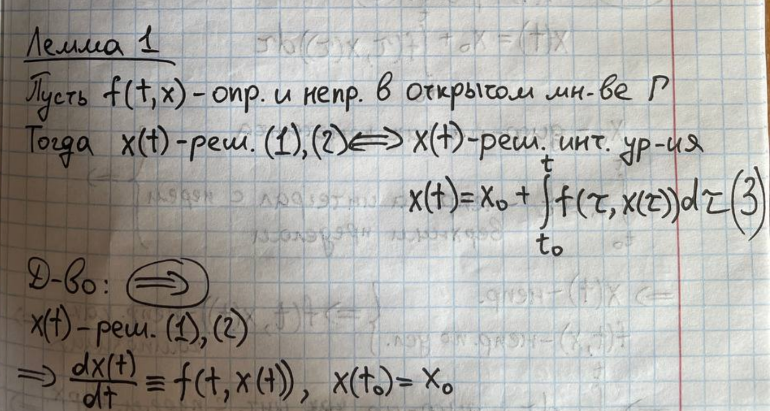 Лемма 1
Пусть f(t,x) - опр. и непр. в открытом мн-ве Г
Тогда x(t) - реш. (1), (2) ⟺ x(t) - реш. инт. ур-ия
x(t) = x₀ + ∫_{t₀}^{t} f(τ, x(τ))dτ (3)
Д-во: ⟹
x(t) - реш. (1), (2)
⟹ dx(t)/dt ≡ f(t, x(t)), x(t₀) = x₀